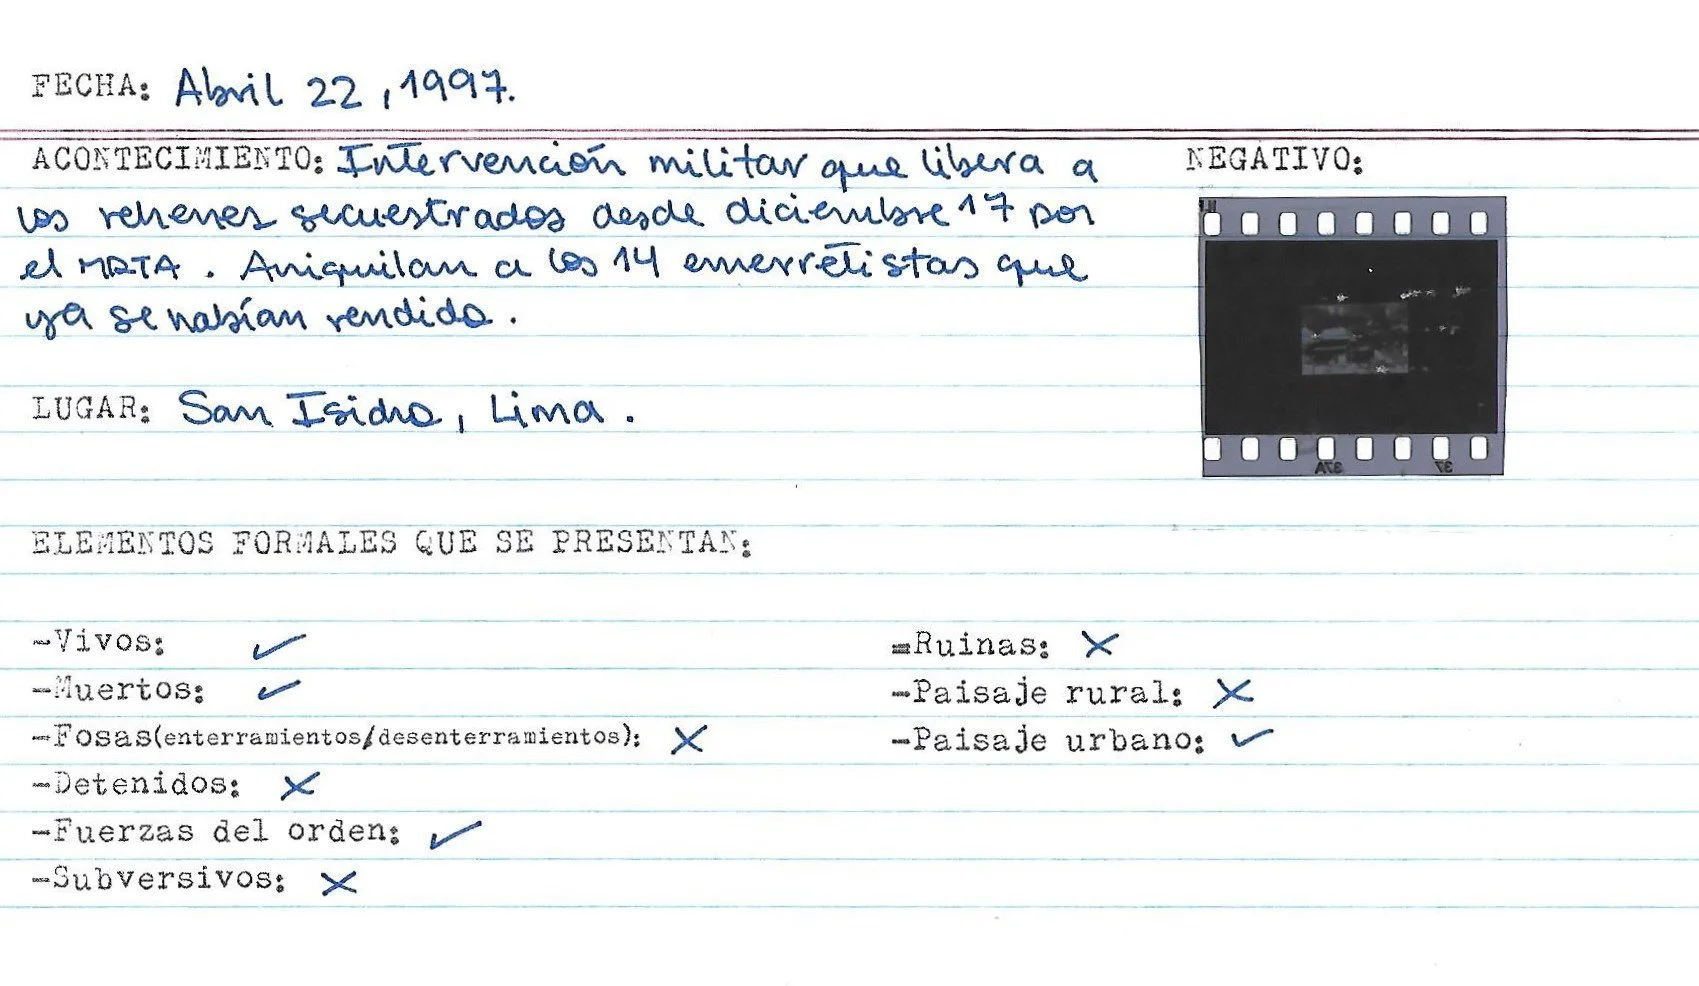 FECHA: Abril 22, 1997.
ACONTECIMIENTO: Intervención militar que libera a
los rehenes secuestrados desde diciembre 17 por
el MRTA. Aniquilan a los 14 emerretistas que
ya se habían rendido.
NEGATIVO:
37A
37
LUGAR: San Isidro, Lima.
ELEMENTOS FORMALES QUE SE PRESENTAN:
-Vivos: ✓
-Muertos: ✓
-Fosas(enterramientos/desenterramientos): X
-Detenidos: X
-Fuerzas del orden: ✓
-Subversivos: X
=Ruinas: X
-Paisaje rural: X
-Paisaje urbano: ✓